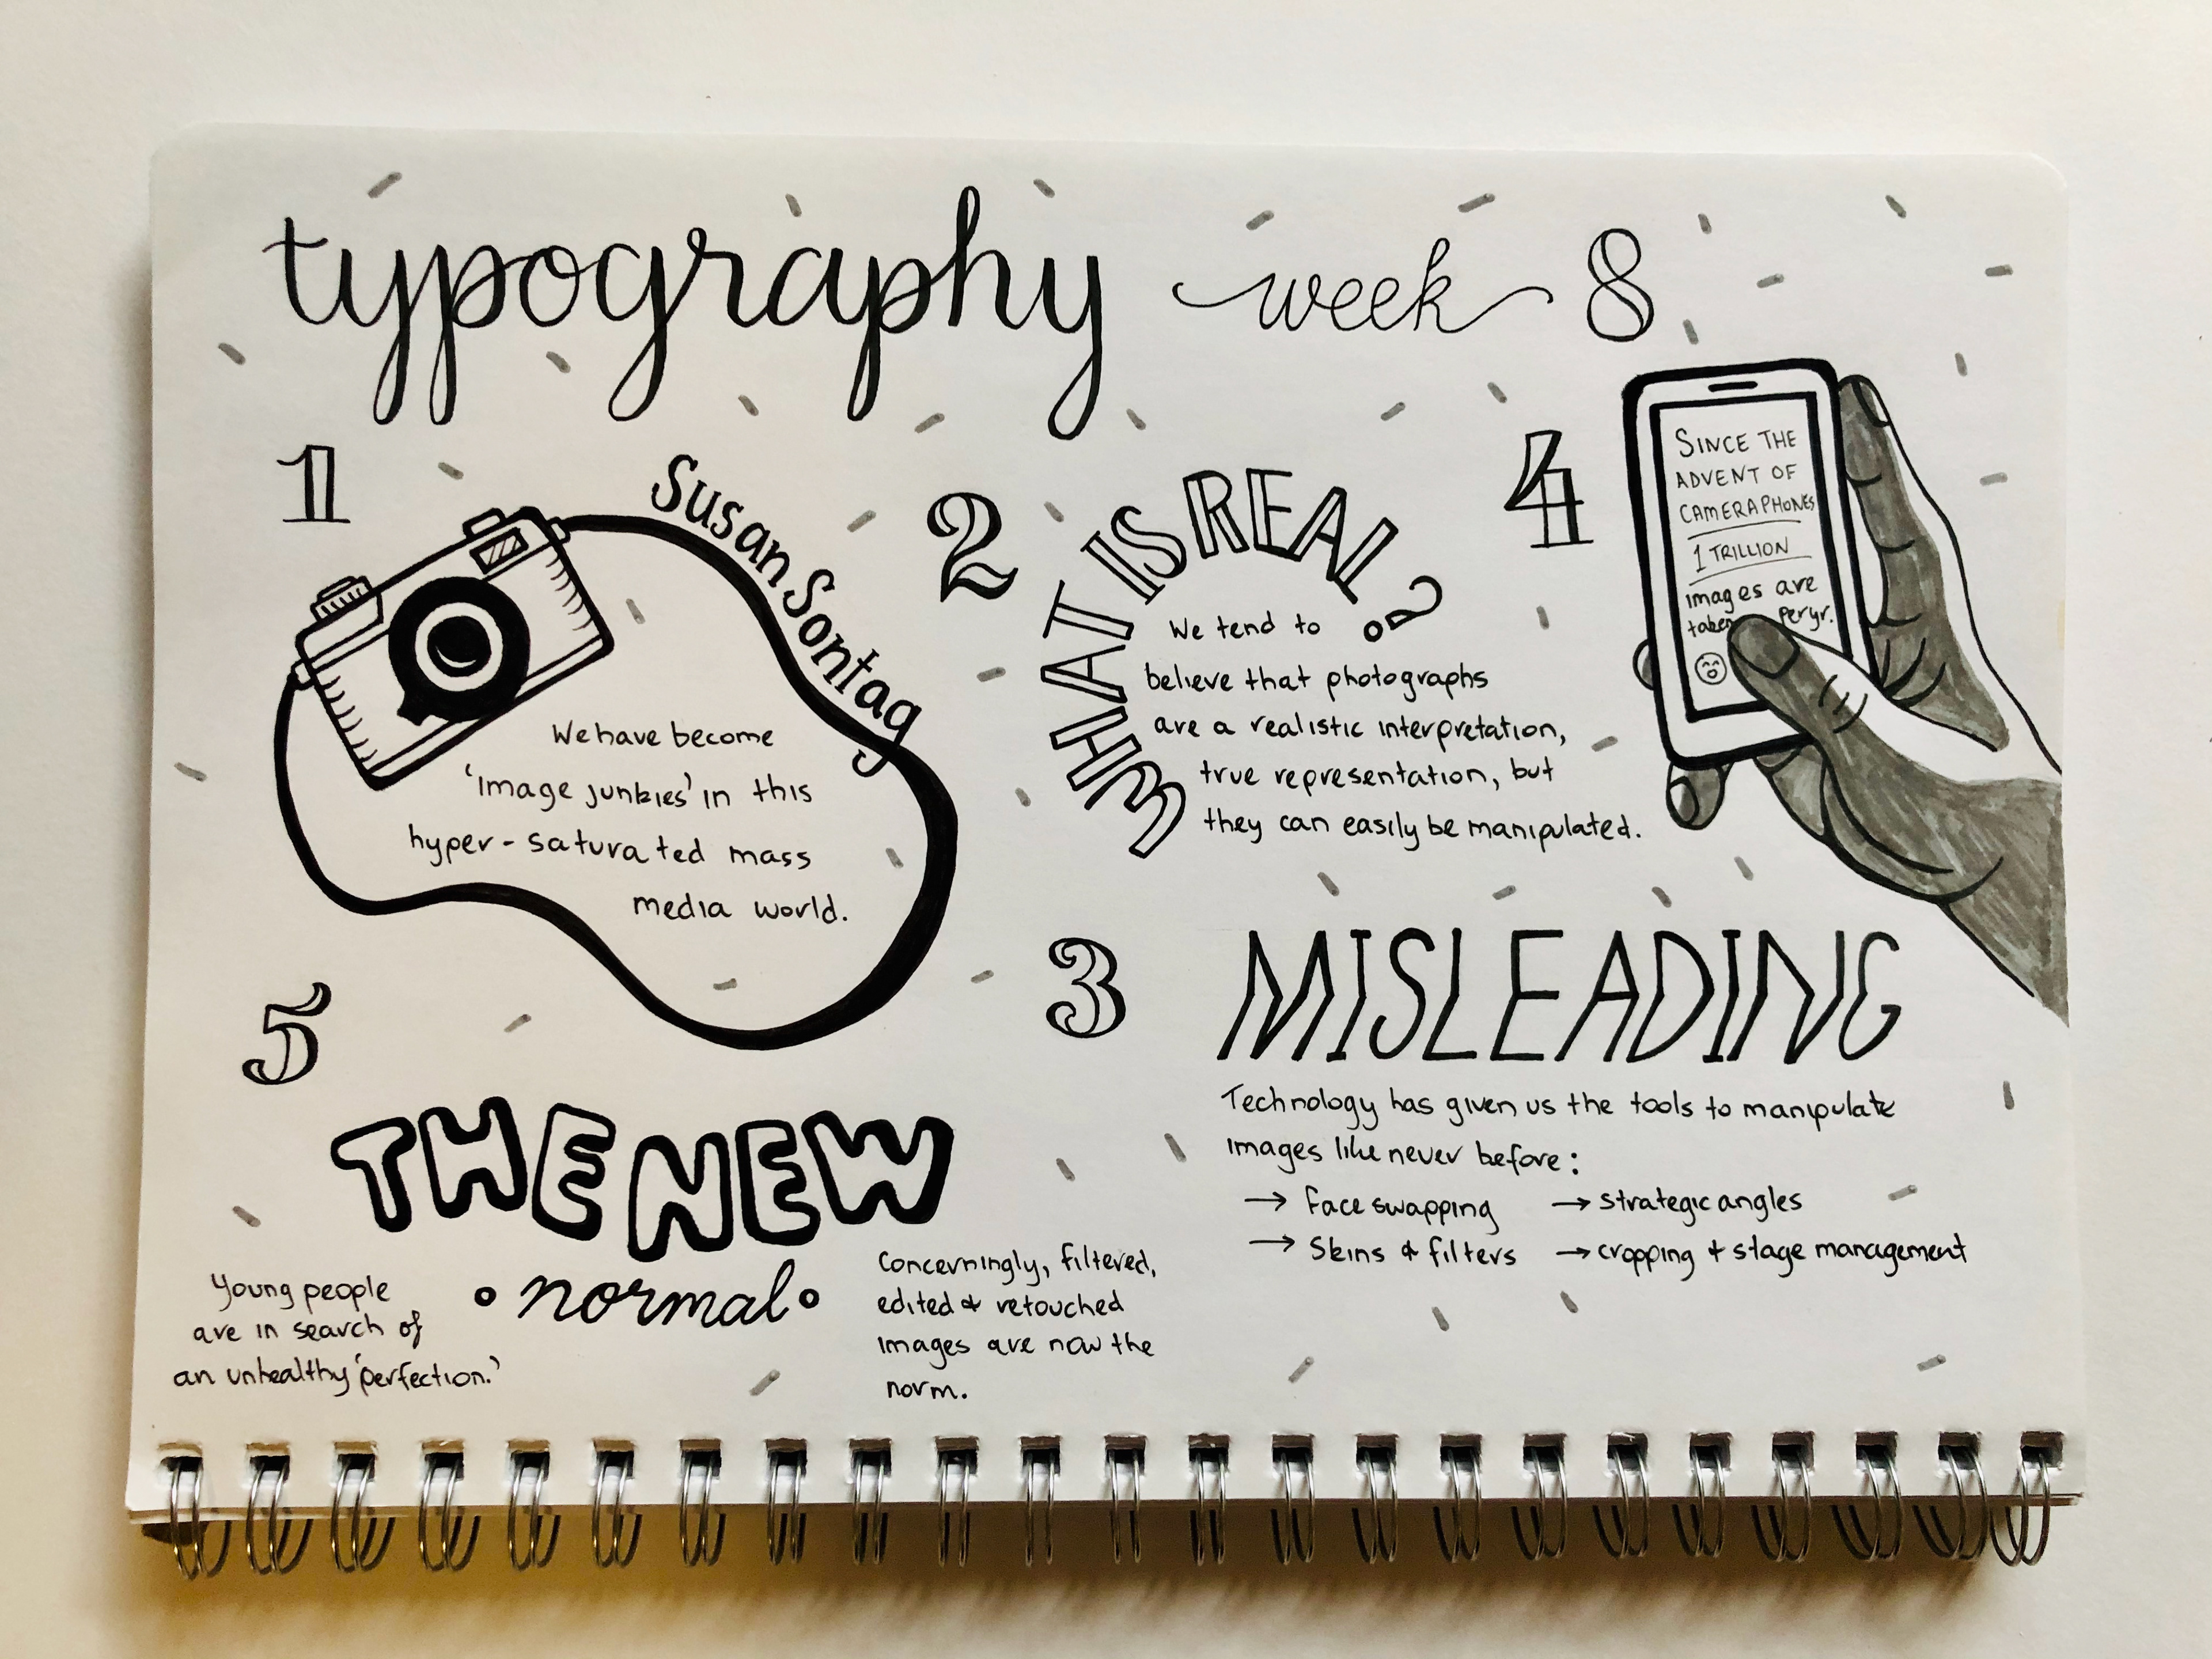 typography week 8
1
Susan Sontag
We have become
'image junkies' in this
hyper-saturated mass
media world.
2
WHAT IS REAL?
We tend to
believe that photographs
are a realistic interpretation,
true representation, but
they can easily be manipulated.
3
MISLEADING
Technology has given us the tools to manipulate
images like never before:
→ Face swapping → strategic angles
→ Skins & filters → cropping + stage management
4
SINCE THE
ADVENT OF
CAMERAPHONES
1 TRILLION
images are
taken per yr.
5
THE NEW
normal
Young people
are in search of
an unhealthy 'perfection.'
Concerningly, filtered,
edited & retouched
images are now the
norm.